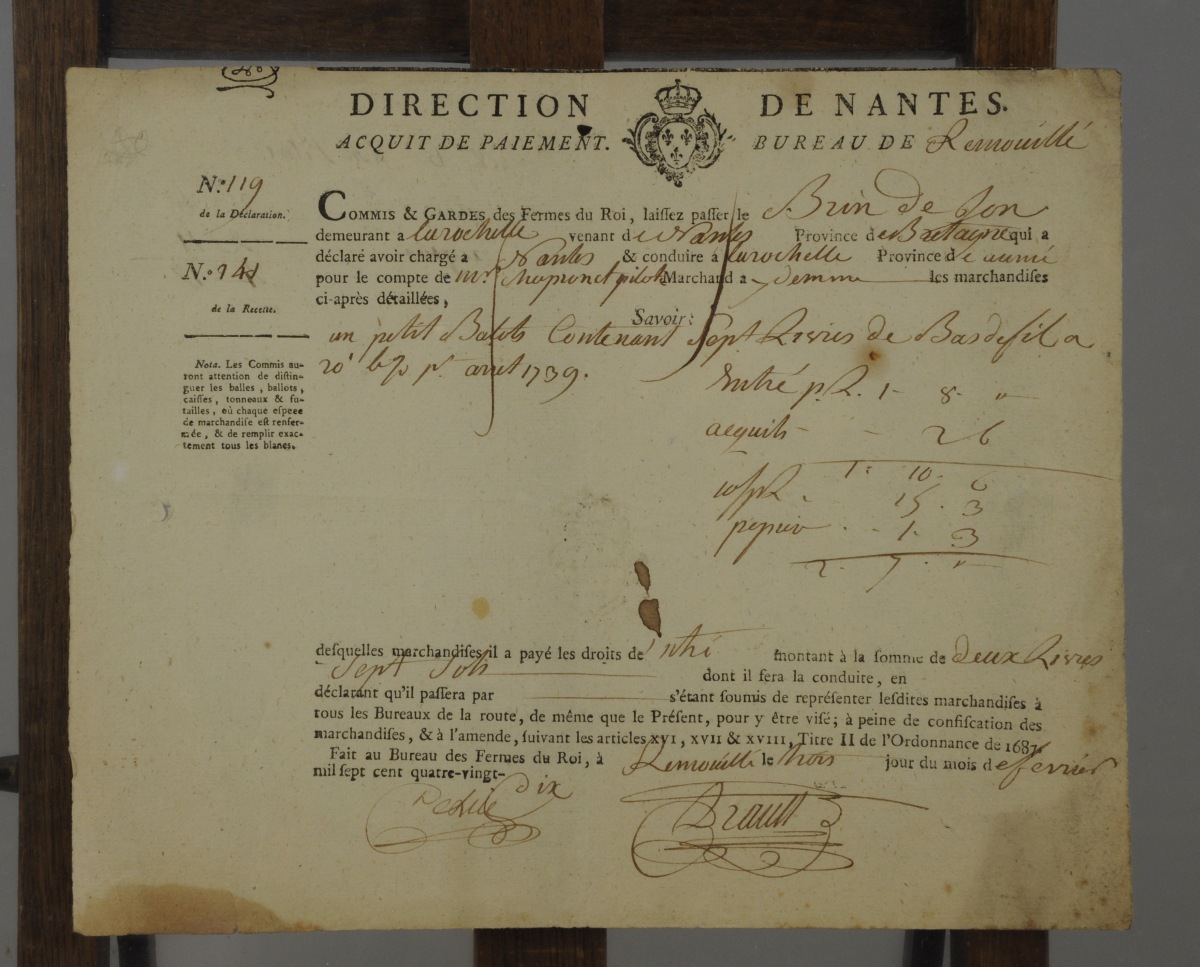 DIRECTION DE NANTES.
ACQUIT DE PAIEMENT. BUREAU DE Remouillé
N.º 119
de la Déclaration.
N.º 141
de la Recette.
Nota. Les Commis au-
ront attention de distin-
guer les balles, ballots,
caisses, tonneaux & fu-
tailles, où chaque espece
de marchandise est renfer-
mée, & de remplir exac-
tement tous les blancs.
COMMIS & GARDES des Fermes du Roi, laissez passer le Brin de Son
demeurant a larochelle venant de Nantes Province de Bretagne qui a
déclaré avoir chargé a Nantes & conduire à larochelle Province d'aunis
pour le compte de mr. Marchand a demme les marchandises
ci-après détaillées,
Savoir:
un petit Balots Contenant Sept Livres de Bas de fil a
20 arret 1739.
Entré p. 1 - 8 - "
acquits - - 2 6
1 : 10 . 6
10 s. p. L. . 15 . 3
papier . - 1 . 3
2 . 7 . "
desquelles marchandises il a payé les droits de montant à la somme de deux Livres
Sept Sols dont il sera la conduite, en
déclarant qu'il passera par s'étant soumis de représenter lesdites marchandises à
tous les Bureaux de la route, de même que le Présent, pour y être visé; à peine de confiscation des
marchandises, & à l'amende, suivant les articles XVI, XVII & XVIII, Titre II de l'Ordonnance de 1687.
Fait au Bureau des Fermes du Roi, à Remouillé le trois jour du mois de fevrier
mil sept cent quatre-vingt-dix
Drault